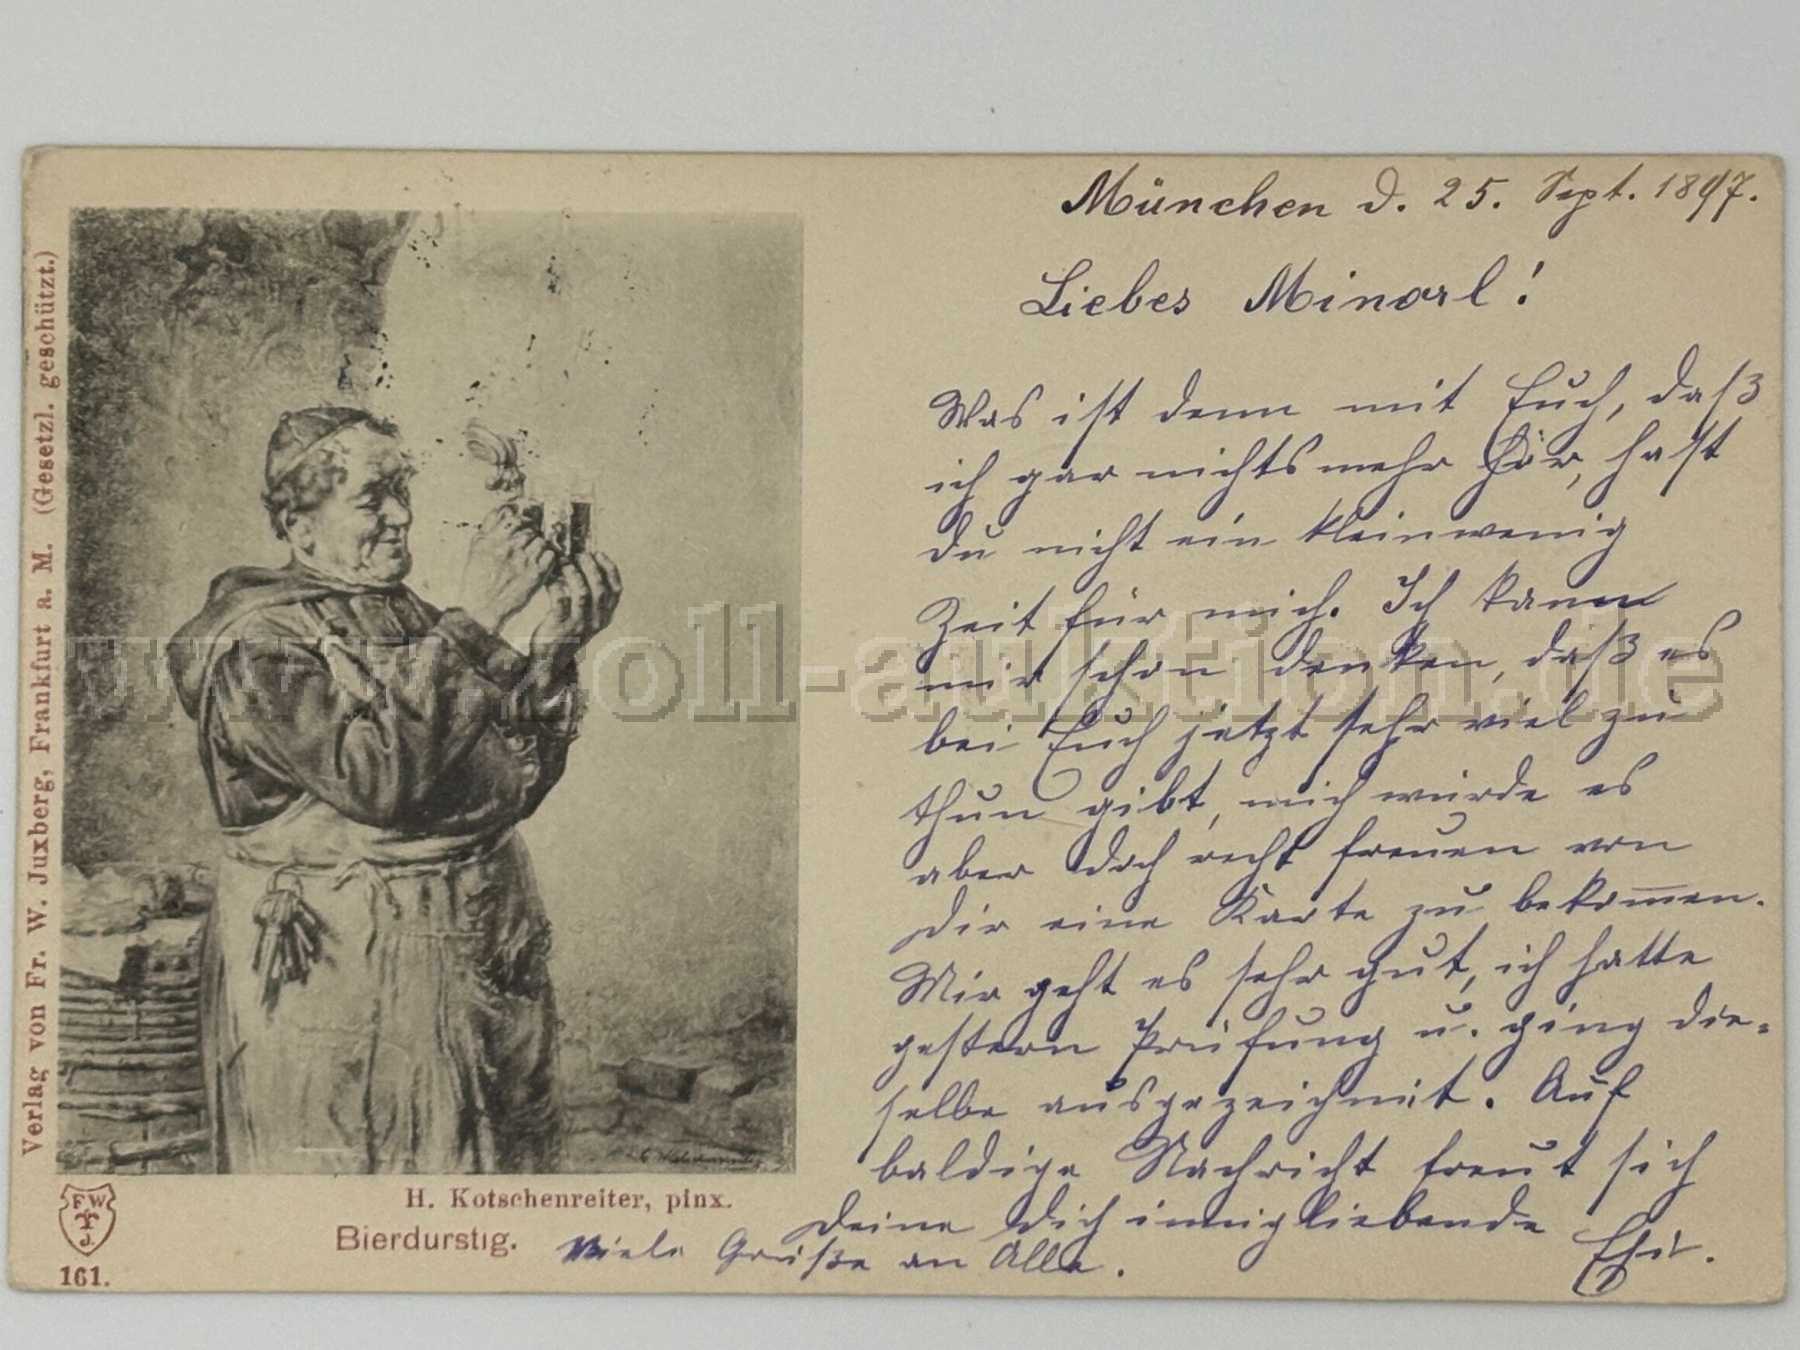 München d. 25. Sept. 1897.
Liebes Minerl!
Was ist denn mit Euch, daß
ich gar nichts mehr hör, hast
du nicht ein kleinwenig
Zeit für mich. Ich kann
mir schon denken, daß es
bei Euch jetzt sehr viel zu
thun gibt, mich würde es
aber doch recht freuen von
Dir eine Karte zu bekommen.
Mir geht es sehr gut, ich hatte
gestern Prüfung u. ging die=
selbe ausgezeichnet. Auf
baldige Nachricht freut sich
Deine Dich innigliebende
Viele Grüße an Alle.
Verlag von Fr. W. Juxberg, Frankfurt a. M. (Gesetzl. geschützt.)
H. Kotschenreiter, pinx.
Bierdurstig.
F W
J.
161.
www.zoll-auktion.de